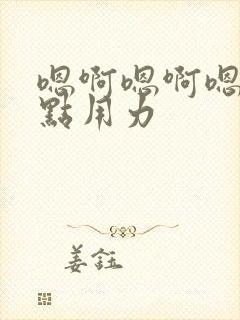 嗯啊嗯啊嗯
點用力
姜鈺